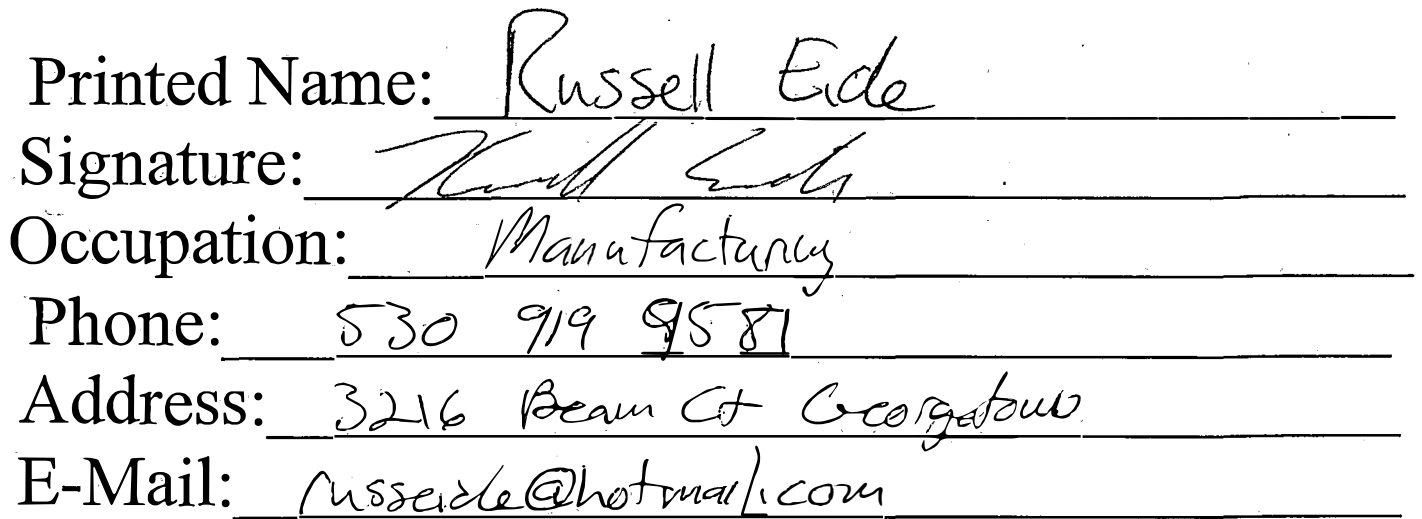 Printed Name: Russell Eide
Signature: Russell Eide
Occupation: Manufacturing
Phone: 530 919 9581
Address: 3216 Beam Ct Georgetown
E-Mail: russeide@hotmail.com